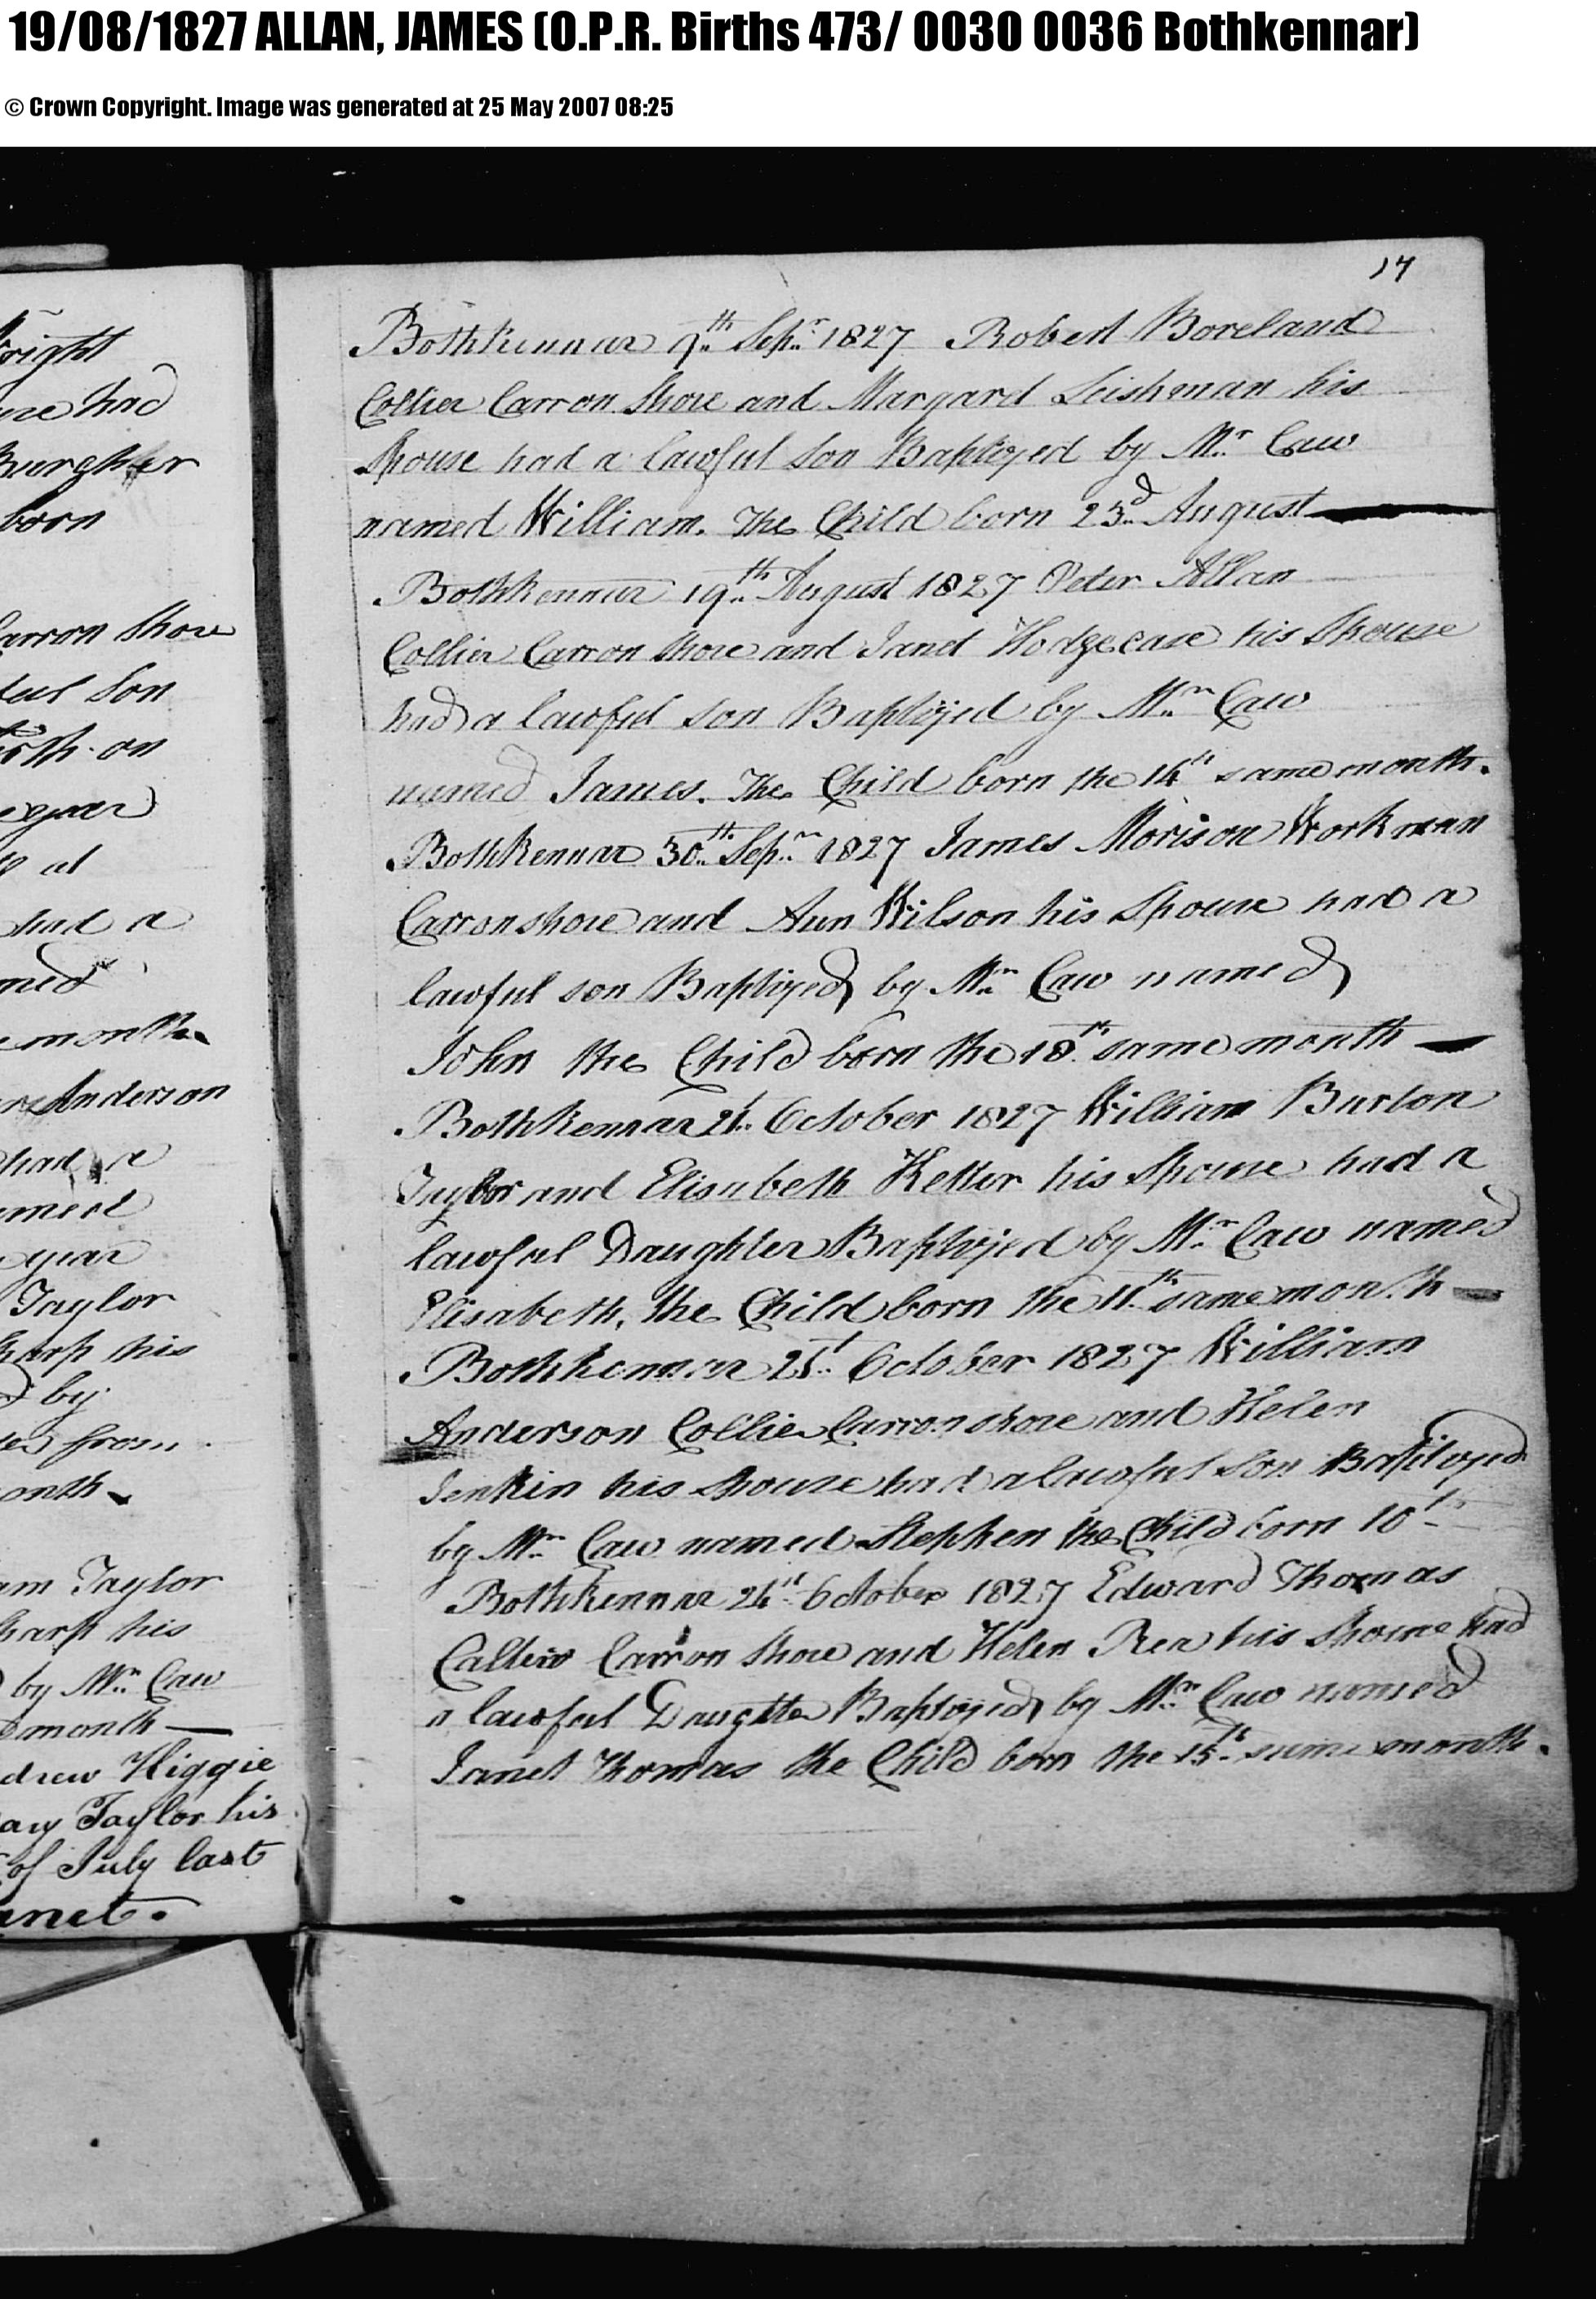 19/08/1827 ALLAN, JAMES (O.P.R. Births 473/ 0030 0036 Bothkennar)
© Crown Copyright. Image was generated at 25 May 2007 08:25
had
born
Carron Shore
Son
on
at
had a
month
Anderson
had a
year
Taylor
his
by
from
Taylor
his
by Mr. Caw
month
Higgie
Taylor his
of July last
17
Bothkennar 9th Sepr. 1827 Robert Boreland
Collier Carron Shore and Margard Leishman his
Spouse had a lawful Son Baptized by Mr. Caw
named William. The Child born 23d August
Bothkennar 19th August 1827 Peter Allan
Collier Carron Shore and Janet Hodgecase his Spouse
had a lawful son Baptized by Mr. Caw
named James. The Child born the 14th same month.
Bothkennar 30th Sepr. 1827 James Morison Workman
Carronshore and Ann Wilson his Spouse had a
lawful son Baptized by Mr. Caw named
John the Child born the 18th same month
Bothkennar 21t October 1827 William Burton
Taylor and Elisabeth his Spouse had a
lawful Daughter Baptized by Mr. Caw named
Elisabeth, the Child born the 11th same month
Bothkennar 21t October 1827 William
Anderson Collier Carronshore and Helen
Jenkin his Spouse had a lawful Son Baptized
by Mr. Caw named Stephen the Child born 10th
Bothkennar October 1827 Edward Thomas
Carron Shore and Helen Rea his Spouse had
a lawful Daughter Baptized by Mr. Caw named
Janet Thomas the Child born the 15th same month.